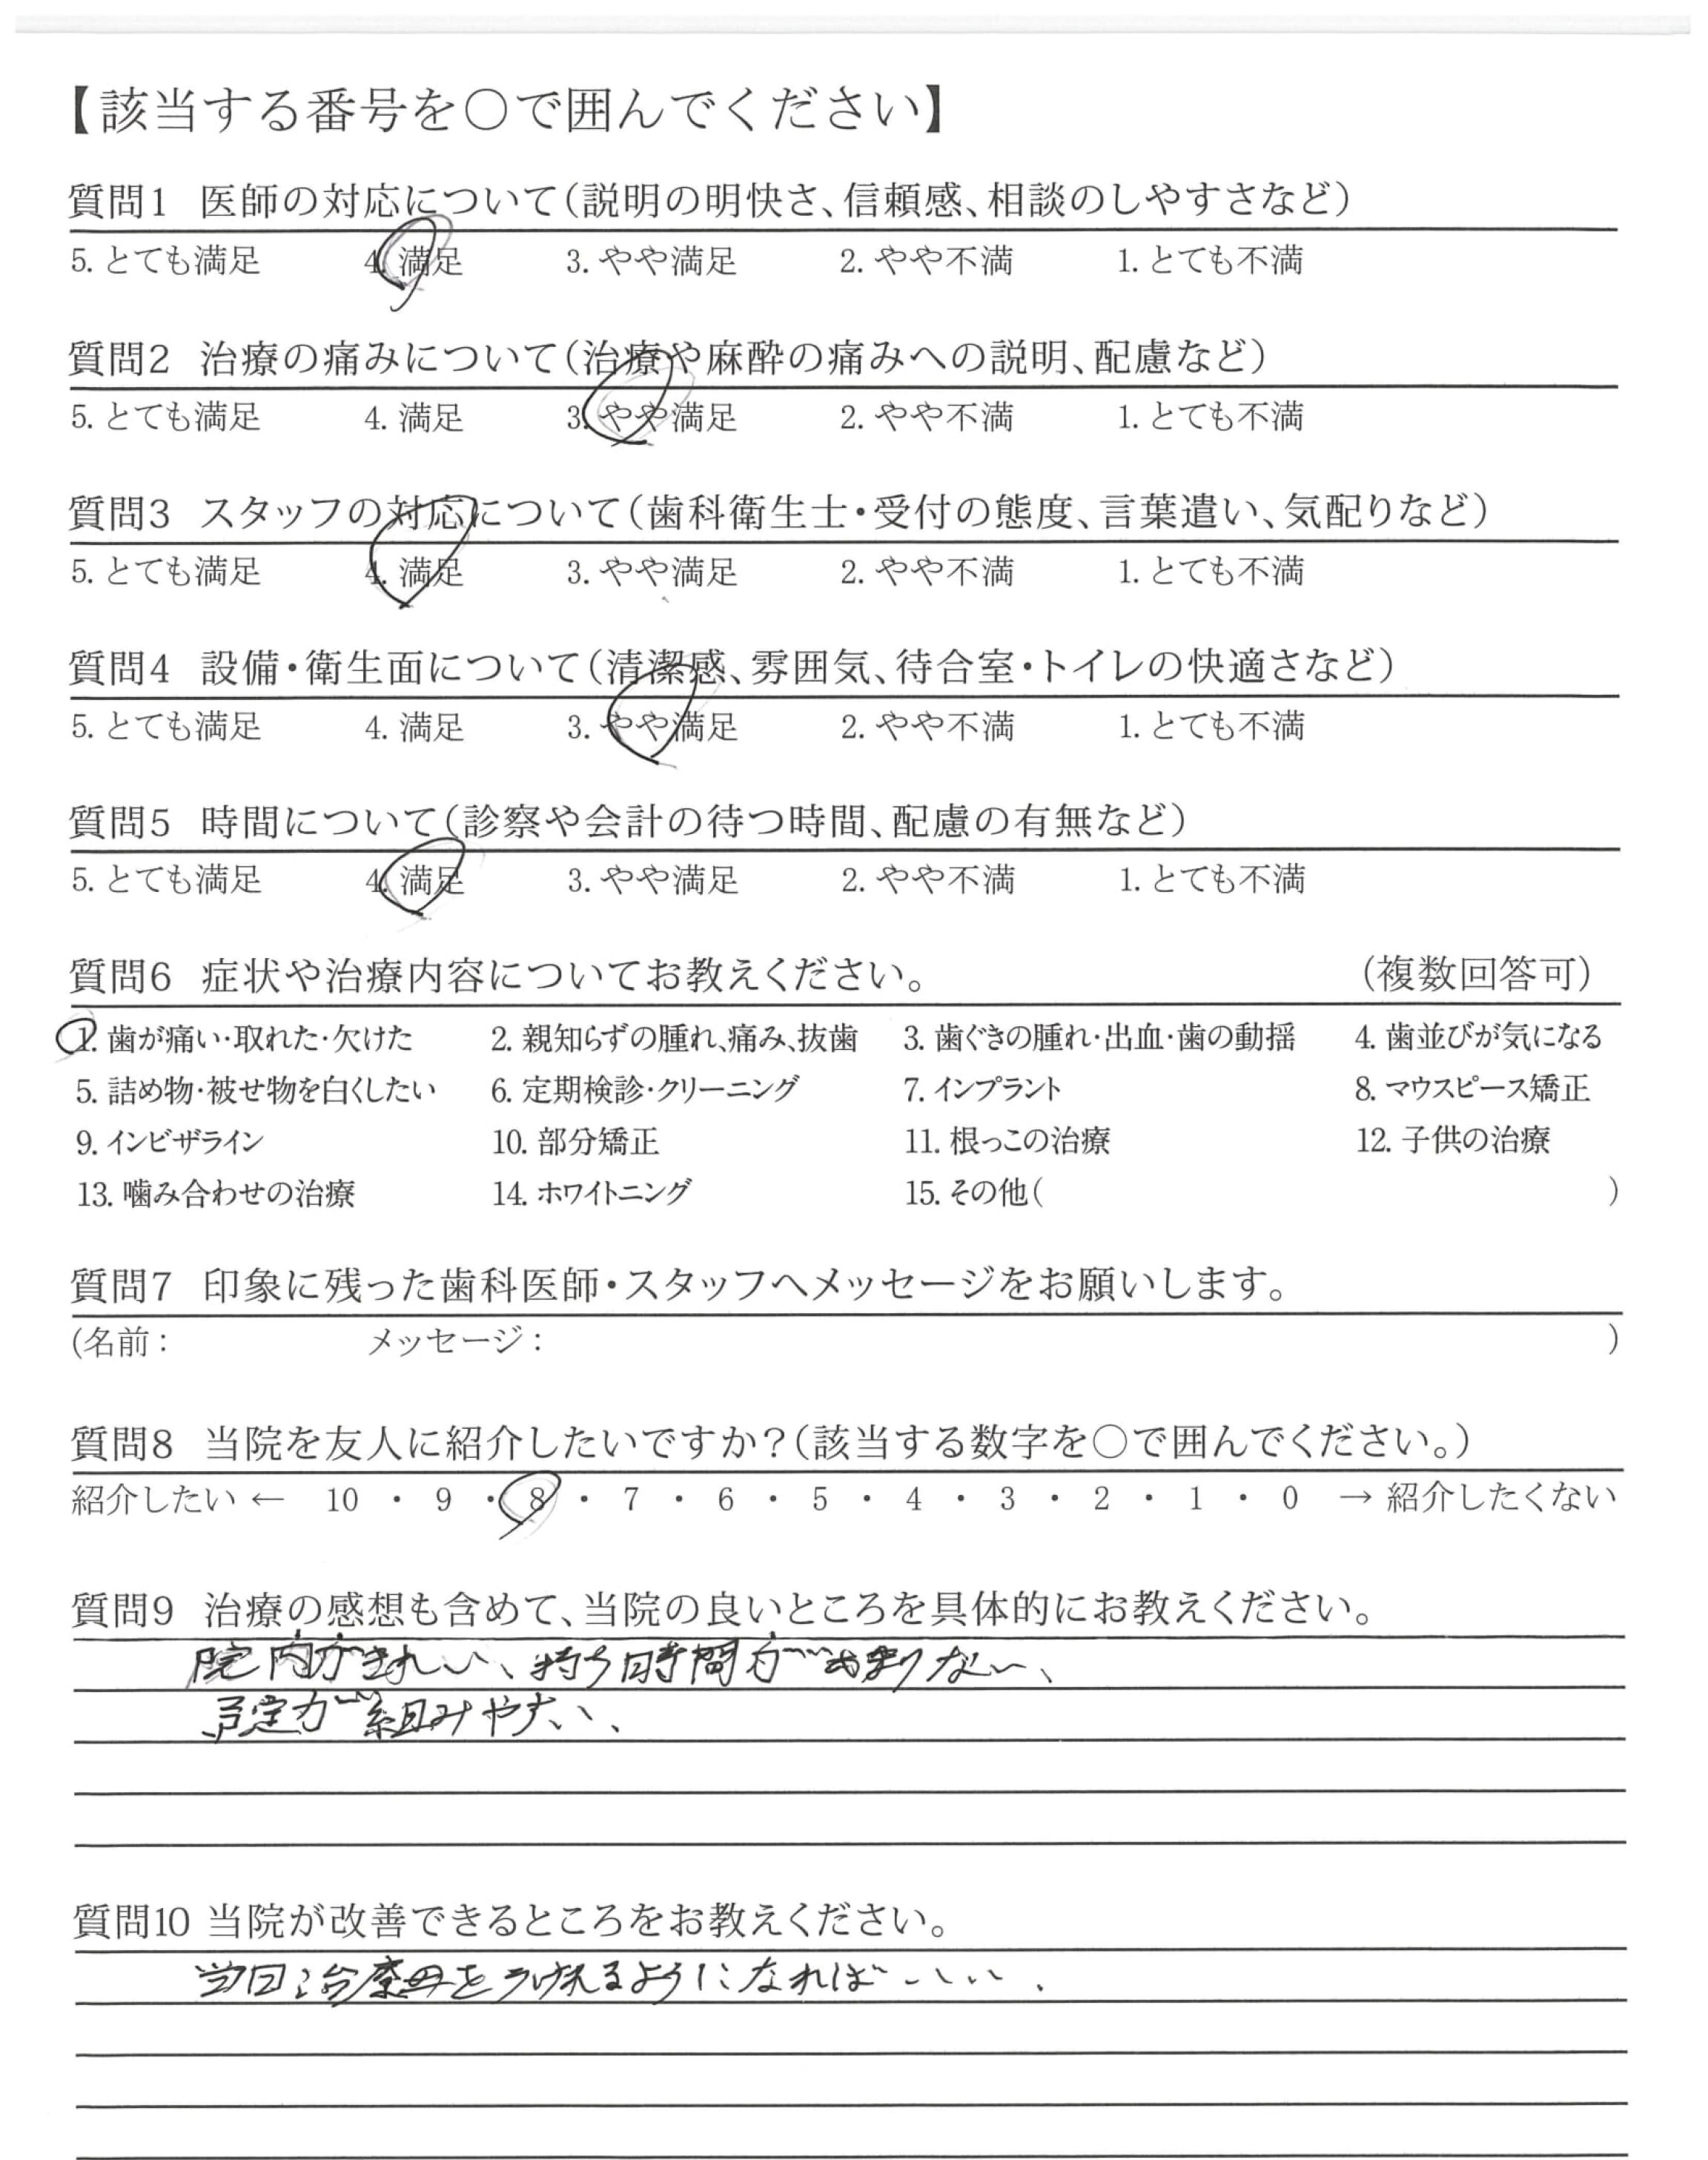 【該当する番号を○で囲んでください】
質問1 医師の対応について(説明の明快さ、信頼感、相談のしやすさなど)
5. とても満足 4. 満足 3. やや満足 2. やや不満 1. とても不満
質問2 治療の痛みについて(治療や麻酔の痛みへの説明、配慮など)
5. とても満足 4. 満足 3. やや満足 2. やや不満 1. とても不満
質問3 スタッフの対応について(歯科衛生士・受付の態度、言葉遣い、気配りなど)
5. とても満足 4. 満足 3. やや満足 2. やや不満 1. とても不満
質問4 設備・衛生面について(清潔感、雰囲気、待合室・トイレの快適さなど)
5. とても満足 4. 満足 3. やや満足 2. やや不満 1. とても不満
質問5 時間について(診察や会計の待つ時間、配慮の有無など)
5. とても満足 4. 満足 3. やや満足 2. やや不満 1. とても不満
質問6 症状や治療内容についてお教えください。 (複数回答可)
1. 歯が痛い・取れた・欠けた 2. 親知らずの腫れ、痛み、抜歯 3. 歯ぐきの腫れ・出血・歯の動揺 4. 歯並びが気になる
5. 詰め物・被せ物を白くしたい 6. 定期検診・クリーニング 7. インプラント 8. マウスピース矯正
9. インビザライン 10. 部分矯正 11. 根っこの治療 12. 子供の治療
13. 噛み合わせの治療 14. ホワイトニング 15. その他( )
質問7 印象に残った歯科医師・スタッフへメッセージをお願いします。
(名前: メッセージ: )
質問8 当院を友人に紹介したいですか?(該当する数字を○で囲んでください。)
紹介したい ← 10 ・ 9 ・ 8 ・ 7 ・ 6 ・ 5 ・ 4 ・ 3 ・ 2 ・ 1 ・ 0 → 紹介したくない
質問9 治療の感想も含めて、当院の良いところを具体的にお教えください。
院内がきれい、待ち時間があまりない、
予定が組みやすい、
質問10 当院が改善できるところをお教えください。
当日治療をうけれるようになればいい、